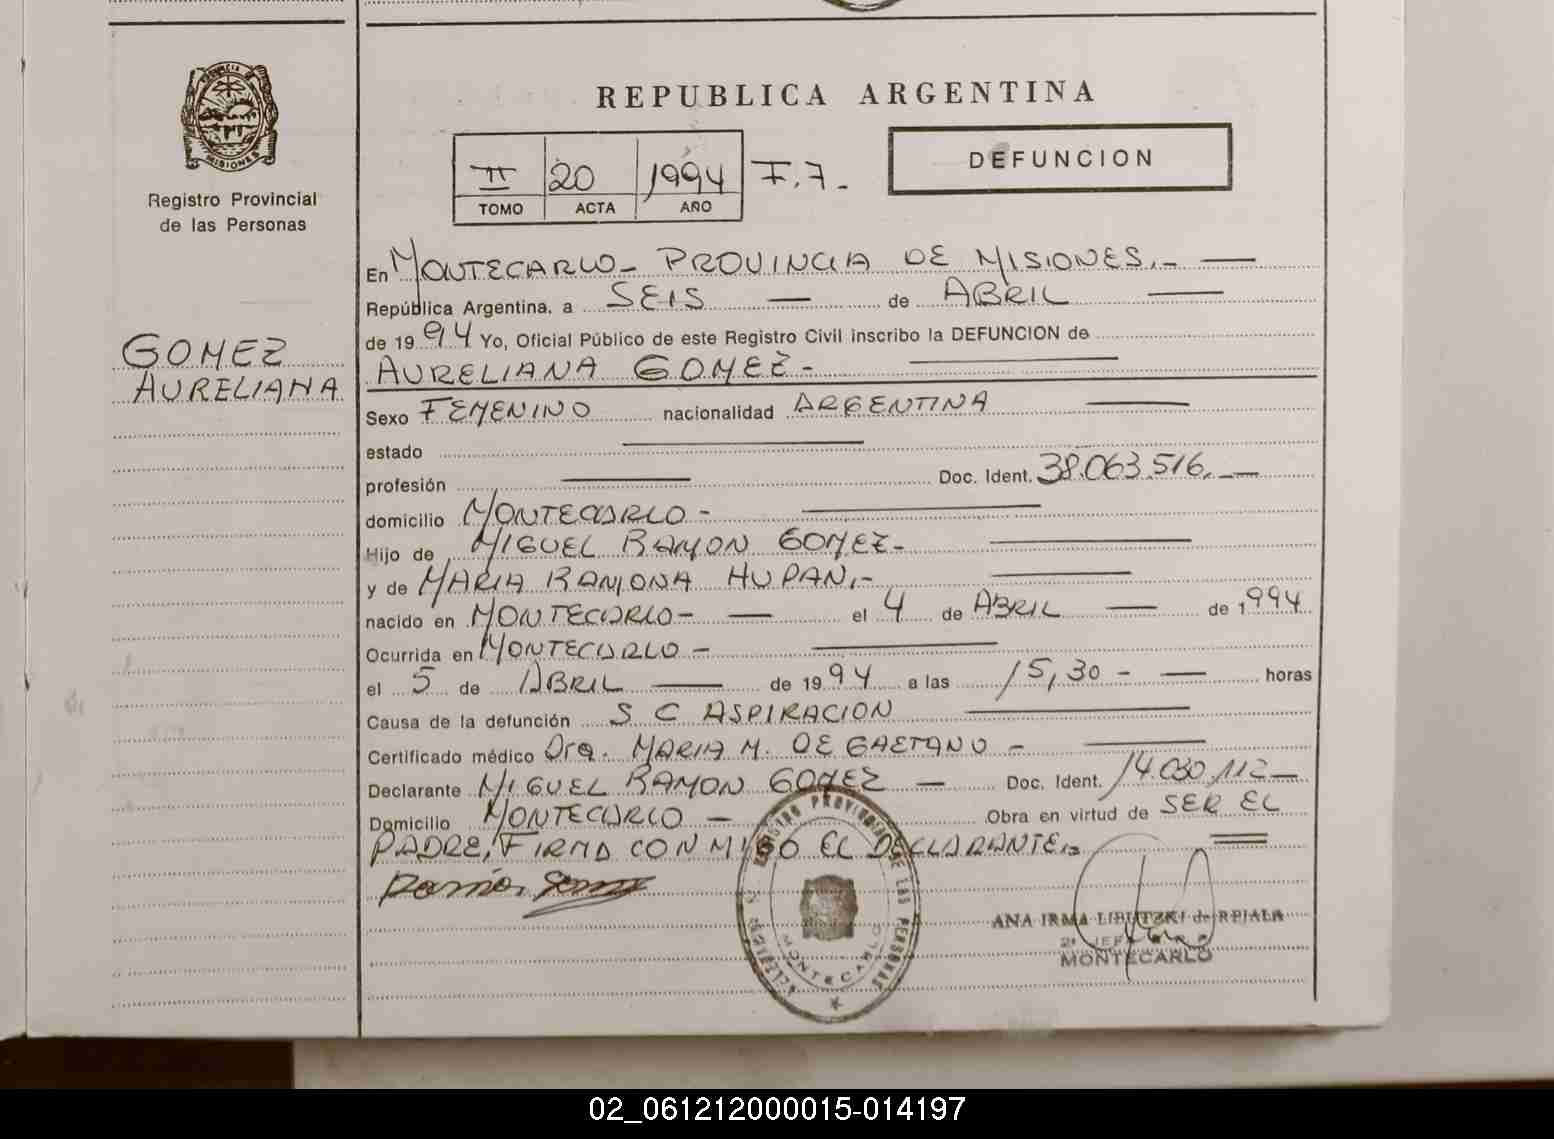 REPUBLICA ARGENTINA
PROVINCIA DE
MISIONES
Registro Provincial
de las Personas
II 20 1994 F.7.-
TOMO ACTA AÑO
DEFUNCION
GOMEZ
AURELIANA
En MONTECARLO- PROVINCIA DE MISIONES.-
República Argentina, a SEIS de ABRIL
de 1994 Yo, Oficial Público de este Registro Civil inscribo la DEFUNCION de
AURELIANA GOMEZ-
Sexo FEMENINO nacionalidad ARGENTINA
estado
profesión Doc. Ident. 38.063.516,-
domicilio MONTECARLO-
Hijo de MIGUEL RAMON GOMEZ-
y de MARIA RAMONA HUPAN,-
nacido en MONTECARLO- el 4 de ABRIL de 1994
Ocurrida en MONTECARLO-
el 5 de ABRIL de 1994 a las 15,30- horas
Causa de la defunción S C ASPIRACION
Certificado médico Dra. MARIA M. DE GAETANO-
Declarante MIGUEL RAMON GOMEZ - Doc. Ident. 14.030.112-
Domicilio MONTECARLO - Obra en virtud de SER EL
PADRE, FIRMA CONMIGO EL DECLARANTE,=
Ramón Gomez
REGISTRO PROVINCIAL DE LAS PERSONAS
MONTECARLO
ANA IRMA de
MONTECARLO
02_061212000015-014197